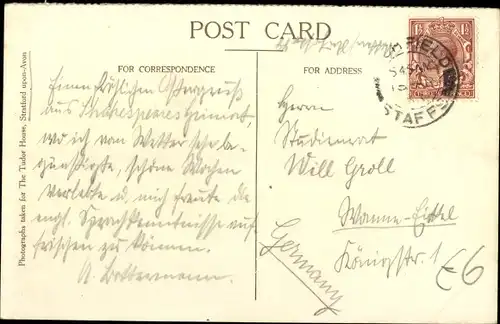 POST CARD
FOR CORRESPONDENCE
FOR ADDRESS
Photographs taken for The Tudor House, Stratford upon-Avon
Einen fröhlichen Ostergruß
aus Shakespeares Heimat,
wo ich vom Wetter sehr be-
günstigte, schöne Wochen
verlebte u. mich freute die
engl. Sprachkenntnisse auf
frischen zu können.
A. Bottermann
Herrn
Studienrat
Will Groll
Wanne-Eickel
Königstr. 1
Germany
FIELD
STAFFS